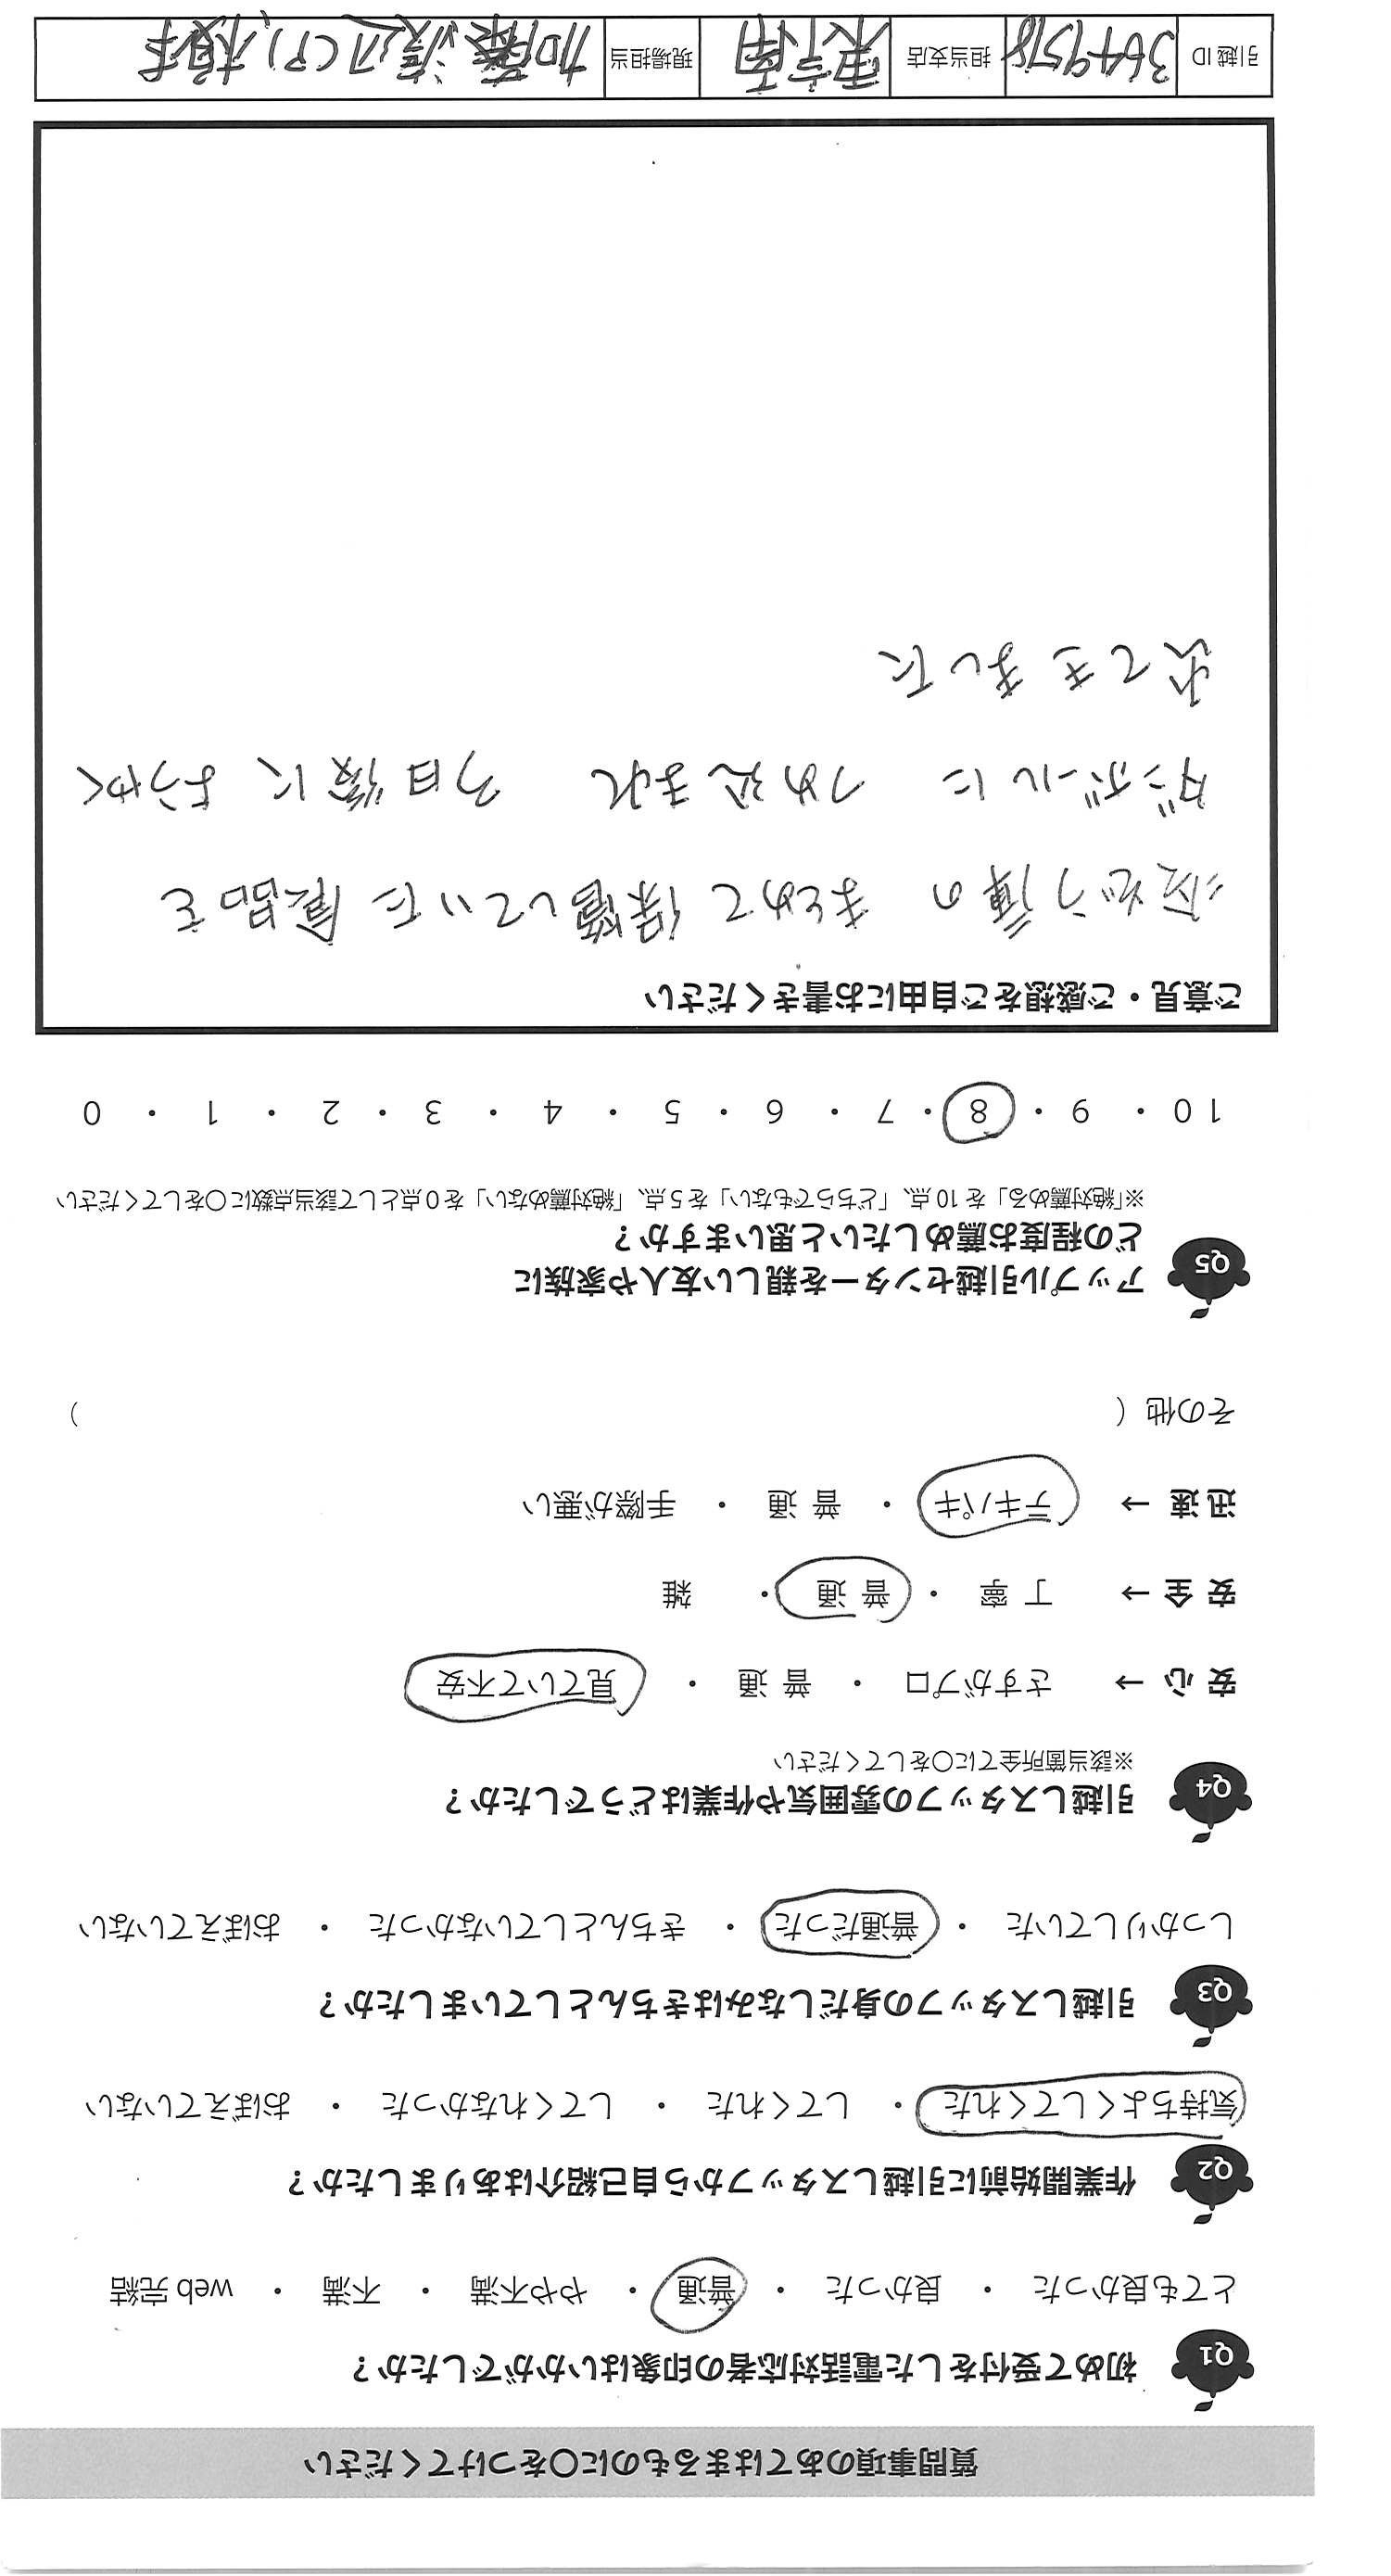 質問事項のあてはまるものに〇をつけてください
Q1 初めて受付をした電話対応者の印象はいかがでしたか？
とても良かった ・ 良かった ・ 普通 ・ やや不満 ・ 不満 ・ web 完結
Q2 作業開始前に引越しスタッフから自己紹介はありましたか？
気持ちよくしてくれた ・ してくれた ・ してくれなかった ・ おぼえていない
Q3 引越しスタッフの身だしなみはきちんとしていましたか？
しっかりしていた ・ 普通だった ・ きちんとしていなかった ・ おぼえていない
Q4 引越しスタッフの雰囲気や作業はどうでしたか？
※該当箇所全てに〇をしてください
安心 → さすがプロ ・ 普通 ・ 見ていて不安
安全 → 丁寧 ・ 普通 ・ 雑
迅速 → テキパキ ・ 普通 ・ 手際が悪い
その他（ ）
Q5 アップル引越センターを親しい友人や家族に
どの程度お薦めしたいと思いますか？
※「絶対薦める」を 10 点、「どちらでもない」を 5 点、「絶対薦めない」を 0 点として該当点数に〇をしてください
10 ・ 9 ・ 8 ・ 7 ・ 6 ・ 5 ・ 4 ・ 3 ・ 2 ・ 1 ・ 0
ご意見・ご感想をご自由にお書きください
冷ぞう庫の まとめて保管していた食品を
ダンボールに つめ込まれ 今日後に ようやく
出てきました
引越 ID 36449578 担当支店 東京南 現場担当 加藤 渡辺(P)